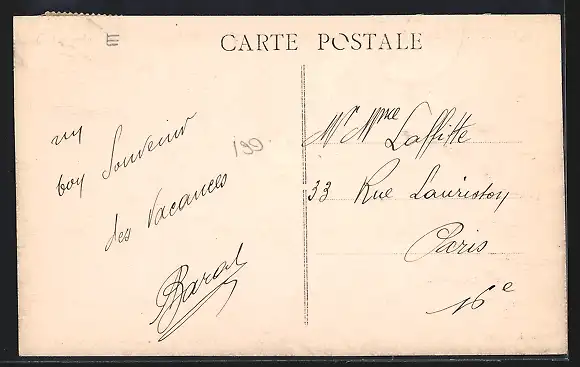 CARTE POSTALE
un
bon Souvenir
des Vacances
Barat
130
Mr Mme Laffitte
33 Rue Lauriston
Paris
16e